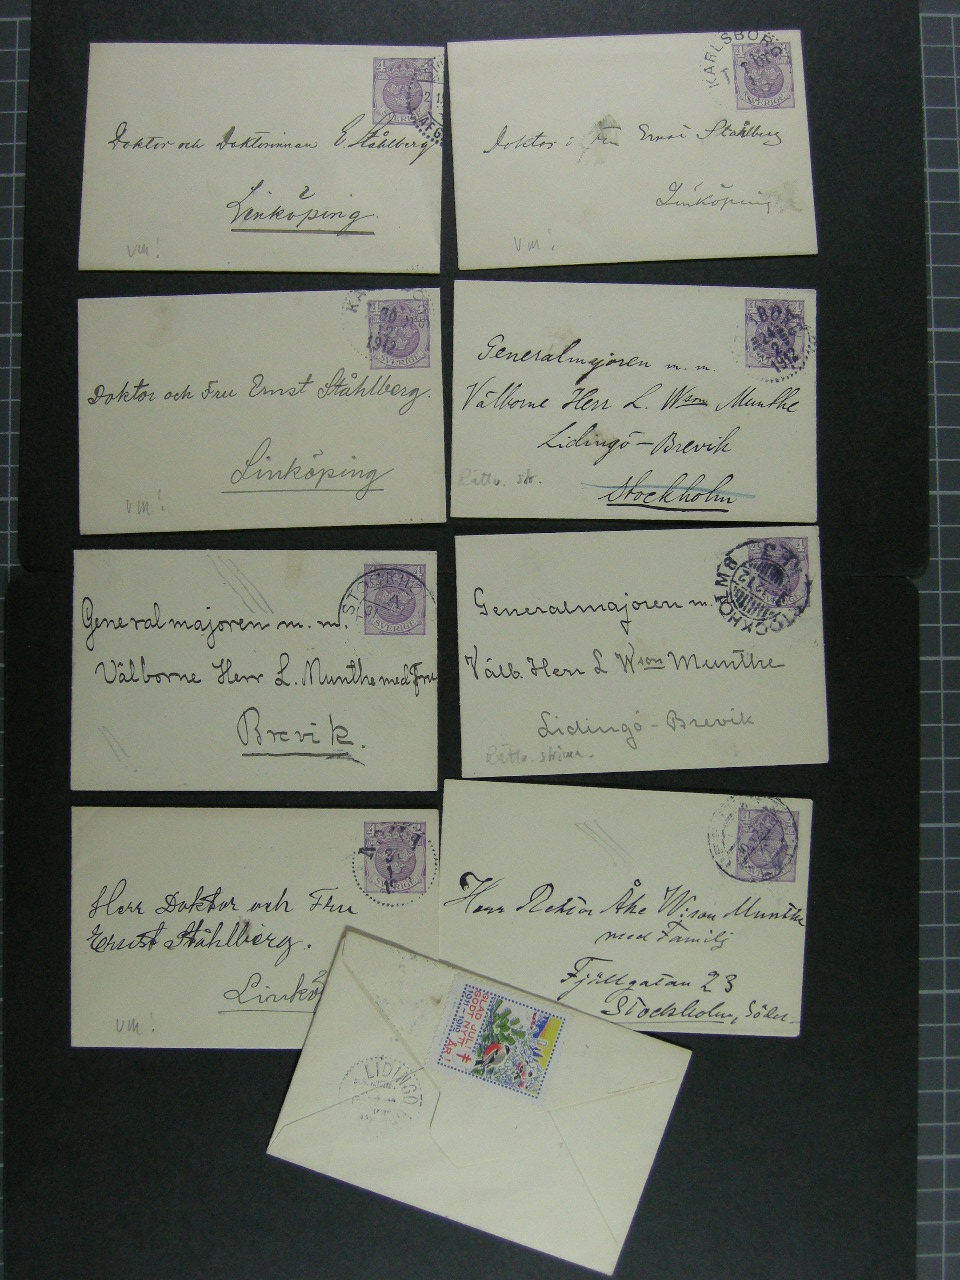 Doktor och Doktorinnan E. Ståhlberg
Linköping.
vm!
KARLSBORG
SVERIGE
Doktor Ernst Ståhlberg
Linköping
vm!
1912
SVERIGE
Doktor och Fru Ernst Ståhlberg.
Linköping
vm!
1912
Generalmajoren m. m.
Välborne Herr L. Wson Munthe
Lidingö-Brevik
Stockholm
Rättv. str.
STOCKH
SVERIGE
Generalmajoren m. m.
Välborne Herr L. Munthe med Fru
Brevik.
STOCKHOLM
Generalmajoren m.
Välb. Herr L Wson Munthe
Lidingö-Brevik
Rättv. strimm.
SVERIGE
Herr Doktor och Fru
Ernst Ståhlberg.
Linkö
vm!
Herr Rektor Åke W:son Munthe
med Familj
Fjällgatan 23
Stockholm, Söder-
GLAD JUL!
GODT NYTT ÅR!
1911 1910
LIDINGÖ